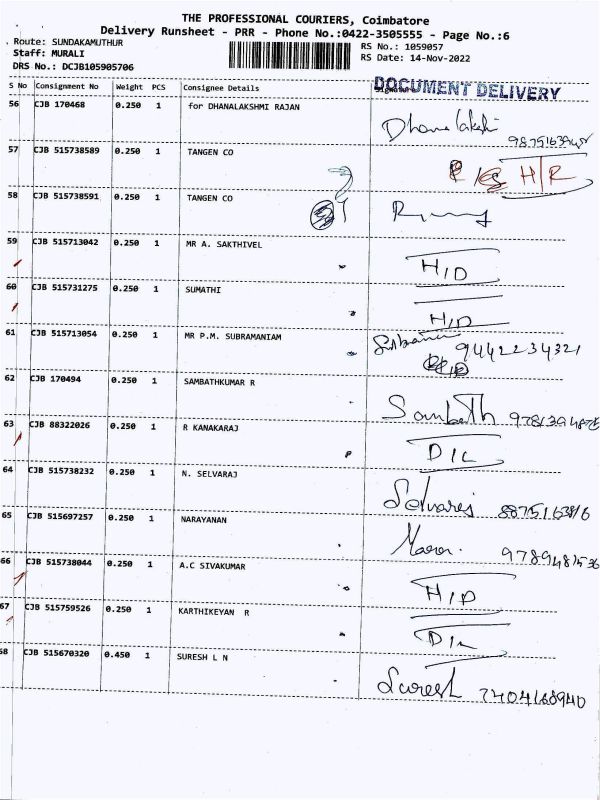 THE PROFESSIONAL COURIERS, Coimbatore
Delivery Runsheet - PRR - Phone No.:0422-3505555 - Page No.:6
Route: SUNDAKAMUTHUR RS No.: 1059057
Staff: MURALI RS Date: 14-Nov-2022
DRS No.: DCJB105905706
S No Consignment No Weight PCS Consignee Details DOCUMENT DELIVERY
56 CJB 170468 0.250 1 for DHANALAKSHMI RAJAN
57 CJB 515738589 0.250 1 TANGEN CO H/R
58 CJB 515738591 0.250 1 TANGEN CO
59 CJB 515713042 0.250 1 MR A. SAKTHIVEL H/D
60 CJB 515731275 0.250 1 SUMATHI H/D
61 CJB 515713054 0.250 1 MR P.M. SUBRAMANIAM 9442234321
62 CJB 170494 0.250 1 SAMBATHKUMAR R Sambath
63 CJB 88322026 0.250 1 R KANAKARAJ D/L
64 CJB 515738232 0.250 1 N. SELVARAJ Selvaraj
65 CJB 515697257 0.250 1 NARAYANAN
66 CJB 515738044 0.250 1 A.C SIVAKUMAR H/D
67 CJB 515759526 0.250 1 KARTHIKEYAN R D/L
68 CJB 515670320 0.450 1 SURESH L N Suresh 7404168940